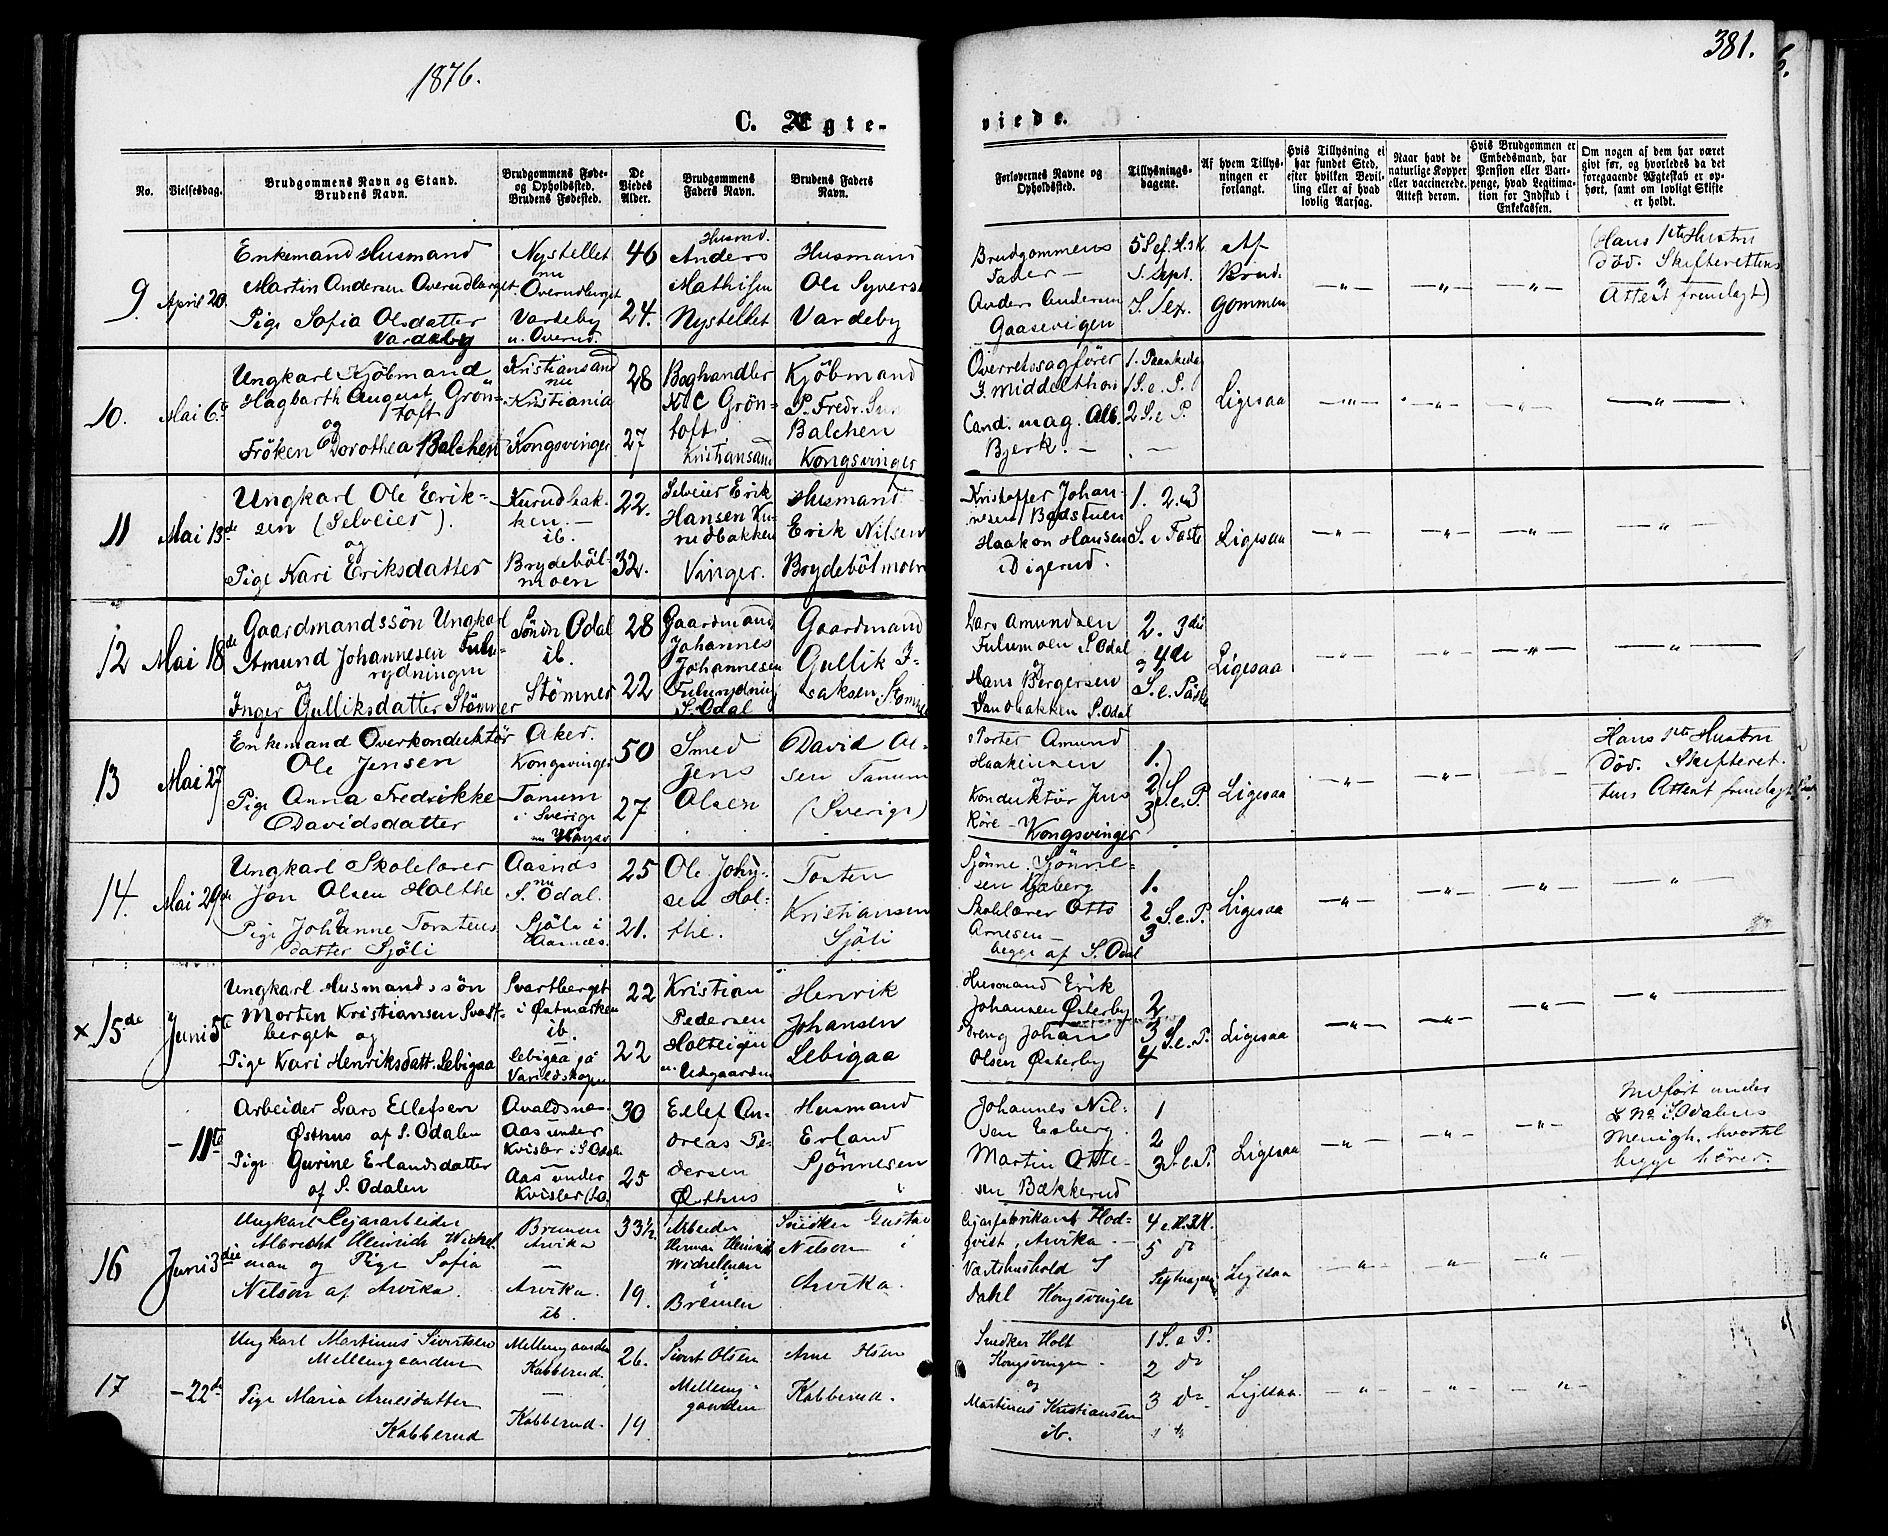 1876.
381.
C. Ægte-
viede.
No.
Vielsesdag.
Brudgommens Navn og Stand.
Brudens Navn.
Brudgommens Føde-
og Opholdssted.
Brudens Fødested.
De
Viedes
Alder.
Brudgommens
Faders Navn.
Brudens Faders
Navn.
Forlovernes Navne og
Opholdssted.
Tillysnings-
dagene.
Af hvem Tillys-
ningen er
forlangt.
Hvis Tillysning ei
har fundet Sted,
efter hvilken Bevil-
ling eller af hvad
lovlig Aarsag.
Naar havt de
naturlige Kopper
eller vaccinerede.
Attest derom.
Hvis Brudgommen er
Embedsmand, har
Pension eller Vart-
penge, hvad Legitima-
tion for Indskud i
Enkekassen.
Om nogen af dem har været
givt før, og hvorledes da det
foregaaende Ægteskab er op-
hørt, samt om lovligt Skifte
er holdt.
9. April 20.
Enkemand Husmand
Martin Andersen Overudberget.
Pige Sofia Olsdatter
Vardeby
Nystellet
nu
Overudberget
Vardeby
u. Overud.
46
24.
Husmd.
Anders
Mathisen
Nystellet
Husmand
Ole Syvers
Vardeby
Brudgommens
Fader —
Anders Andersen
Gaasevigen
5 S. ef. H.3.K.
S. Sept.
S. Sex.
Af
Brud-
gommen
(Hans 1ste Hustru
död. Skifterettens
Attest fremlagt)
10. Mai 6te
Ungkarl Kjöbmand
Hagbarth August Grön-
toft
og
Fröken Dorothea Balchen
Kristiansand
nu
Kristiania
Kongsvinger
28
27
Boghandler
N. C Grön-
toft
Kristiansand
Kjöbmand
P. Fredr.
Balchen
Kongsvinger
Overretssagförer
J. Middelthon
Cand. mag. Alb.
Bjerk. —
1. Paaskedag
1 S. e. P.
2 S. e P.
Ligesaa
11 Mai 13de
Ungkarl Ole Erik-
sen (Selveier).
og
Pige Kari Eriksdatter
Kurudbak-
ken. —
ib.
Brydeböl-
moen
22.
32.
Selveier Erik
Hansen Ku-
rudbakken
Vinger.
Husmand
Erik Nilsen
Brydebölmoen
Kristoffer Johan-
nesen Badstuen
Haakon Hansen
Digerud.
1. 2. 3
S. i Faste
Ligesaa
12 Mai 18de
Gaardmandssön Ungkarl
Amund Johannesen Fulu-
rydningen
og
Inger Gulliksdatter Stömner
Söndr Odal
ib.
Stömner
28
22
Gaardmand
Johannes
Johannesen
Fulurydning
S. Odal
Gaardmand
Gullik I-
saksen Stömner
Lars Amundsen
Fulumoen S. Odal
og
Hans Bergersen
Sandbakken S. Odal
2. 3die
og 4de
S. e. Paaske
Ligesaa
13 Mai 27
Enkemand Overkonduktör
Ole Jensen
Pige Anna Fredrikke
Davidsdatter
Aker.
Kongsvinger
Tanum
i Sverige
nu Kongsv.
50
27.
Smed
Jens
Olsen
David Ol-
sen Tanum
(Sverige)
Portør Amund
Haakensen
og
Konduktör Jens
Röre - Kongsvinger
1.
2
3
S. e. P.
Ligesaa
Hans 1ste Hustru
död. Skifteret-
tens Attest fremlagt
14. Mai 29de
Ungkarl Skolelærer
Jon Olsen Holthe
og
Pige Johanne Torstens
datter Sjöli
Aasnæs
nu
S. Odal.
Sjöli i
Aasnæs.
25
21.
Ole John-
sen Hol-
the.
Tosten
Kristiansen
Sjöli
Sjönne Sjönne-
sen
Skolelærer Otto
Arnesen —
begge af S. Odal
1.
2
3
S. e. P.
Ligesaa
x 15de Juni 5te
Ungkarl Husmandssön
Morten Kristiansen Svart-
berget og
Pige Kari Henriksdatt. Lebigaa
Svartberget
i Østmarken
ib.
Lebigaa på
Varildskogen
22
22
Kristian
Pedersen
Holteigen
u. Udgaarden
Henrik
Johansen
Lebigaa
Husmand Erik
Johansen Østerby
Dreng Johan
Olsen Østerby
2
3
4
S. e. P.
Ligesaa
- 11te
Arbeider Lars Ellefsen
Østhus af S. Odalen
Pige Gurine Erlandsdatter
af S. Odalen
Avaldsnæs
Aas under
Kvisler i S Odal.
Aas under
Kvisler (do)
30
25
Ellef An-
dreas Pe-
dersen
Østhus
Husmand
Erland
Sjönnesen
Johannes Nil-
sen Esberg.
Martin Otte-
sen Bækkerud
1
2
3
S. e. P.
Ligesaa
Indfört under
No i S. Odalens
Menigh. hvortil
begge hörer.
16 Juni 3die
Ungkarl Cigararbeider
Albrecht Heinrich Wichel-
man og Pige Sofia
Nilson af Arvika.
Bremen
Arvika
—
Arvika.
ib.
33½
19.
Arbeider
Herman Heinrich
Wichelman
i
Bremen
Snedker Gustav
Nilson i
Arvika.
Cigarfabrikant Flod-
qvist, Arvika. —
Værtshushold S
Dahl Kongsvinger
4 e. H.3.K.
5 do
Septuages.
Ligesaa
17 - 22de
Ungkarl Martinus Sivertsen
Mellemgaarden
Pige Maria Arnesdatter
Kabberud
Mellemgaarden
Kabberud.
—
Kabberud.
26.
19.
Sivert Olsen
Mellem-
gaarden
Arne Olsen
Kabberud.
Snedker Holt
Kongsvinger -
og
Martinus Kristiansen
ib.
1 S. e P.
2 do
3 do
Ligesaa.